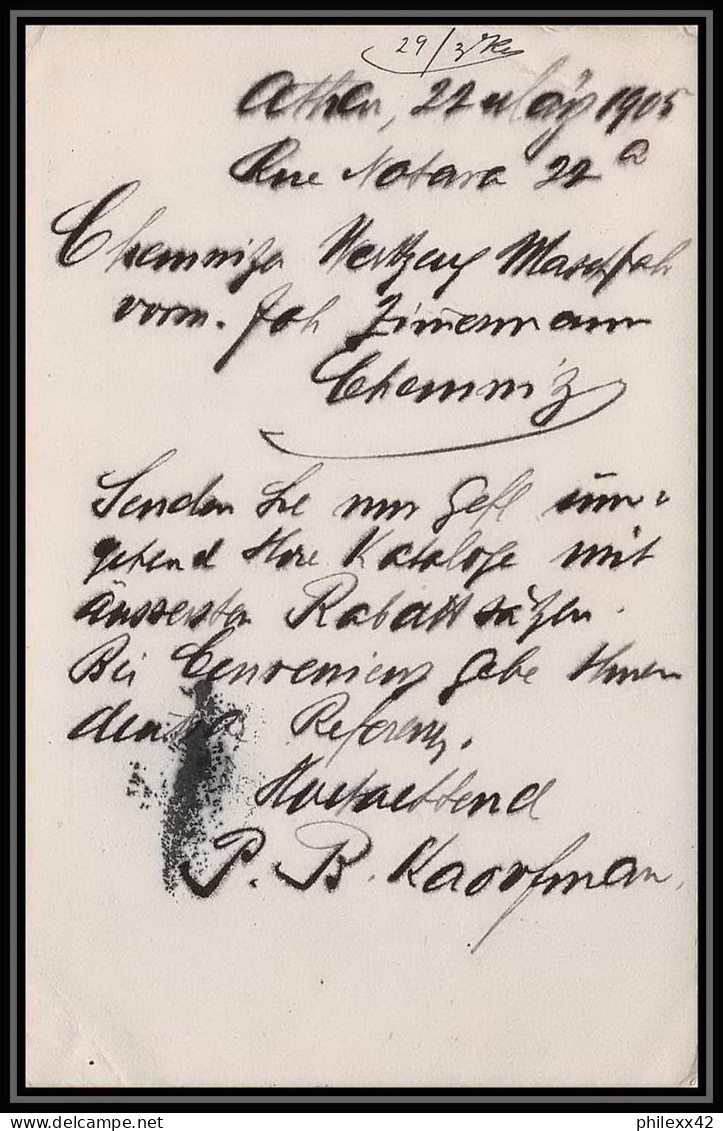 29/3
Athen, 22 März 1905
Rue Notara 22 a
Chemnitzer Werkzeug Maschfab
vorm. Joh Zimermann
Chemniz
Senden Sie mir gefl um-
gehend Ihre Kataloge mit
äussersten Rabattsätzen.
Bei Convenienz gebe Ihnen
Referenz.
Hochachtend
P. B. Kaoofman
philexx42